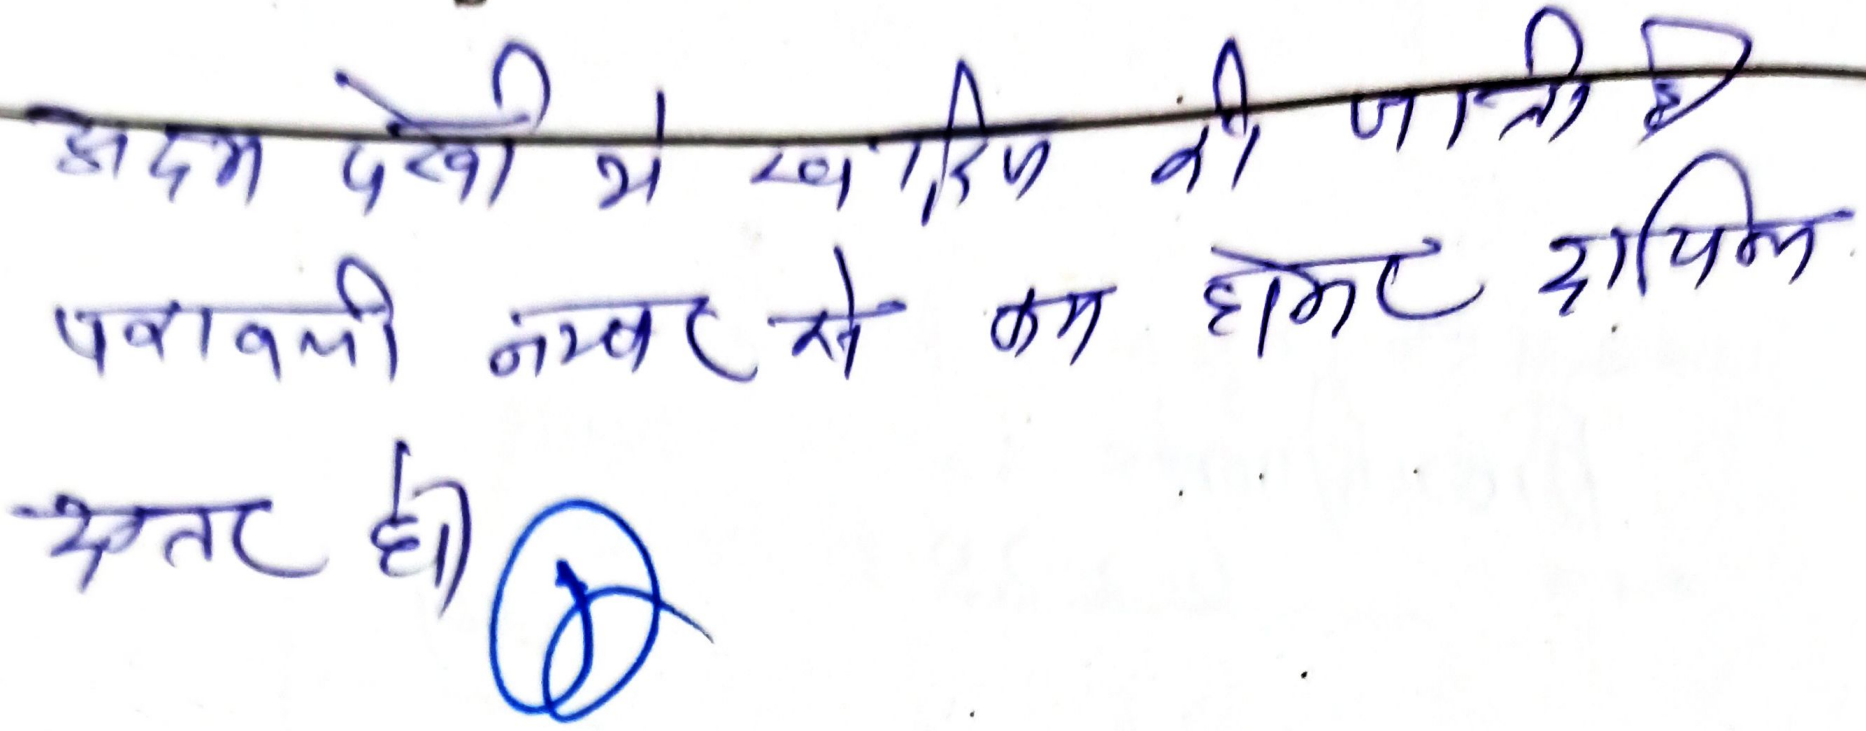 अदम पैरवी में खारिज की जाती है
पत्रावली नम्बर से कम होकर दाखिल
दफ्तर हो।